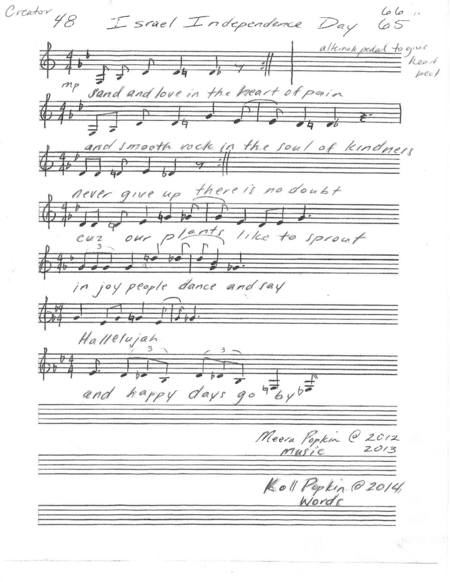 Creator
48 Israel Independence Day 66 "
65
alternate pedal to give
heart
beat
mp
sand and love in the heart of pain
and smooth rock in the soul of kindness
never give up there is no doubt
cuz our plants like to sprout
3
in joy people dance and say
Hallelujah
3 3
and happy days go by
Meera Popkin @ 2012
music 2013
Koll Popkin @ 2014
Words